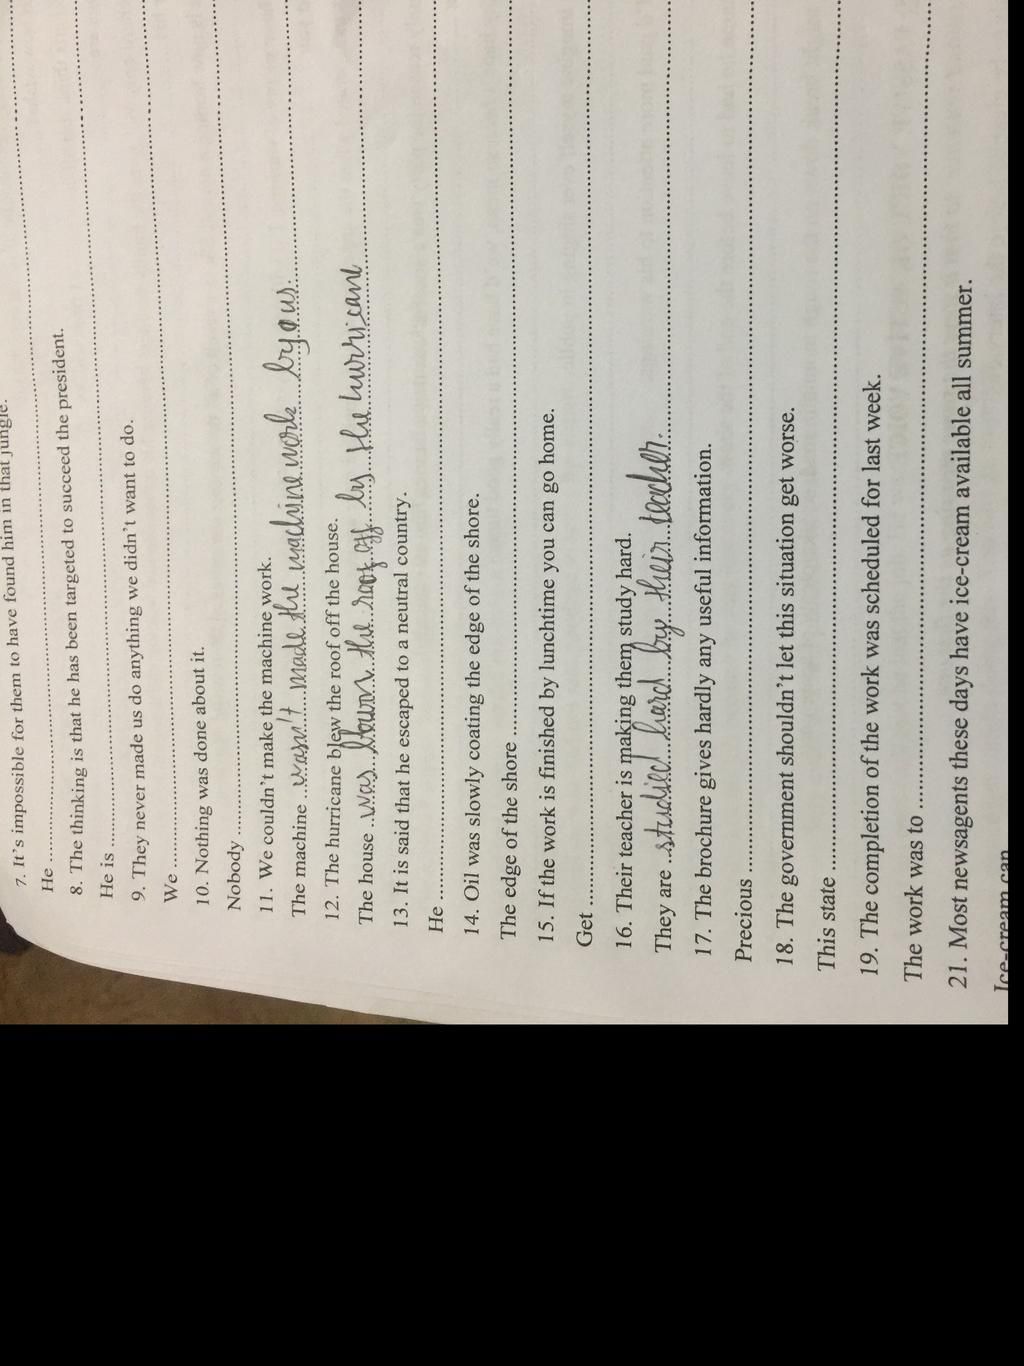 7. It's impossible for them to have found him in that jungle.
He ..........
8. The thinking is that he has been targeted to succeed the president.
He is ..........
9. They never made us do anything we didn't want to do.
We ..........
10. Nothing was done about it.
Nobody ..........
11. We couldn't make the machine work.
The machine ..wasn't made the machine work by ous...........
12. The hurricane blew the roof off the house.
The house ..was blown the roof off by the hurricane..........
13. It is said that he escaped to a neutral country.
He ..........
14. Oil was slowly coating the edge of the shore.
The edge of the shore ..........
15. If the work is finished by lunchtime you can go home.
Get ..........
16. Their teacher is making them study hard.
They are ..studied hard by their teacher...........
17. The brochure gives hardly any useful information.
Precious ..........
18. The government shouldn't let this situation get worse.
This state ..........
19. The completion of the work was scheduled for last week.
The work was to ..........
21. Most newsagents these days have ice-cream available all summer.
Ice-cream can